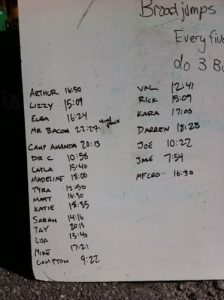 Broad jumps
Every fiv
do 3 B
ARTHUR 16:50
LIZZY 15:09
ELBA 16:24
MR BACON 22:27
CAMP AMANDA 20:13
DIR C 10:58
CAYLA 15:40
MADELINE 18:00
TYRA 12:50
MATT 18:30
KATIE 18:35
SARAH 14:16
TAY 20:15
LISA 15:40
MIKE 17:21
COMPTON 9:22
VAL 12:41
RICK 15:09
KARA 17:00
DARREN 18:23
JOE 10:22
JAKE 7:54
MFCEO 16:30